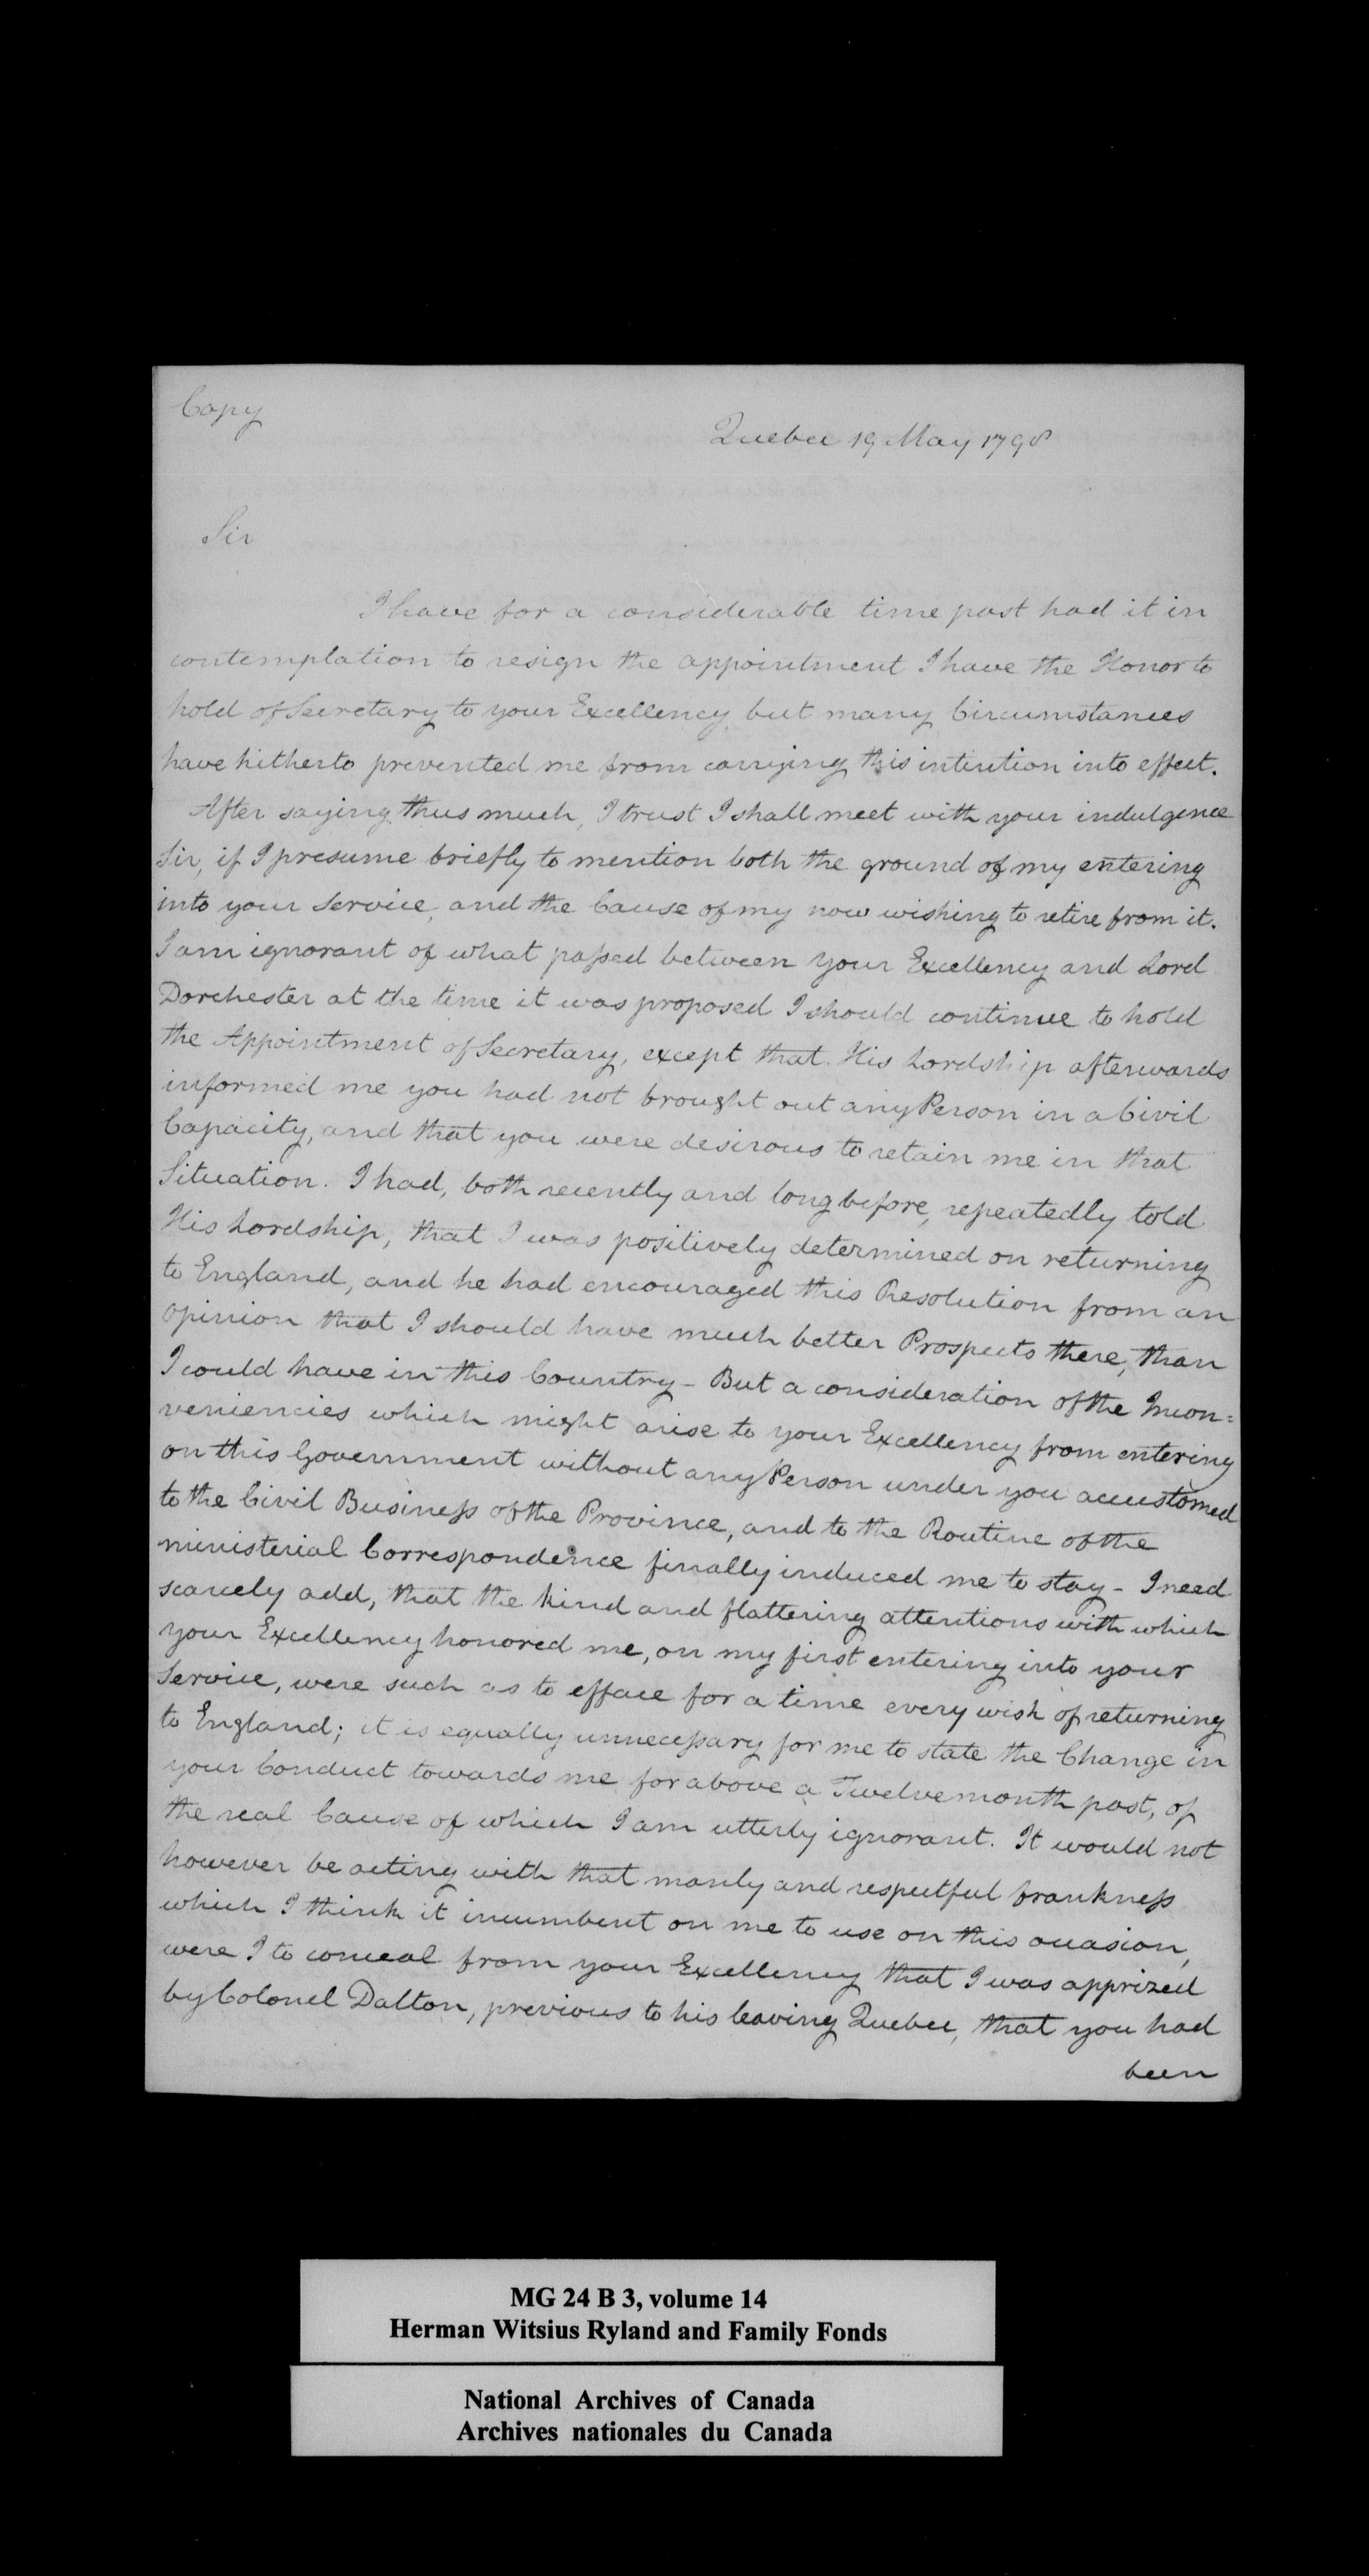 Copy
Quebec 19 May 1798
Sir
I have for a considerable time past had it in
contemplation to resign the appointment I have the Honor to
hold of Secretary to your Excellency but many Circumstances
have hitherto prevented me from carrying this intention into effect.
After saying thus much, I trust I shall meet with your indulgence
Sir, if I presume briefly to mention both the ground of my entering
into your Service, and the Cause of my now wishing to retire from it.
I am ignorant of what passed between your Excellency and Lord
Dorchester at the time it was proposed I should continue to hold
the Appointment of Secretary, except that His Lordship afterwards
informed me you had not brought out any Person in a Civil
Capacity, and that you were desirous to retain me in that
Situation. I had, both recently and long before, repeatedly told
His Lordship, that I was positively determined on returning
to England, and he had encouraged this Resolution from an
opinion that I should have much better Prospects there, than
I could have in this Country - But a consideration of the Incon=
veniencies which might arise to your Excellency from entering
on this Government without any Person under you accustomed
to the Civil Business of the Province, and to the Routine of the
ministerial Correspondence finally induced me to stay - I need
scarcely add, that the kind and flattering attentions with which
your Excellency honored me, on my first entering into your
Service, were such as to efface for a time every wish of returning
to England; it is equally unnecessary for me to state the Change in
your Conduct towards me for above a Twelvemonth past, of
the real Cause of which I am utterly ignorant. It would not
however be acting with that manly and respectful frankness
which I think it incumbent on me to use on this occasion,
were I to conceal from your Excellency that I was apprized
by Colonel Dalton, previous to his leaving Quebec, that you had
been
MG 24 B 3, volume 14
Herman Witsius Ryland and Family Fonds
National Archives of Canada
Archives nationales du Canada